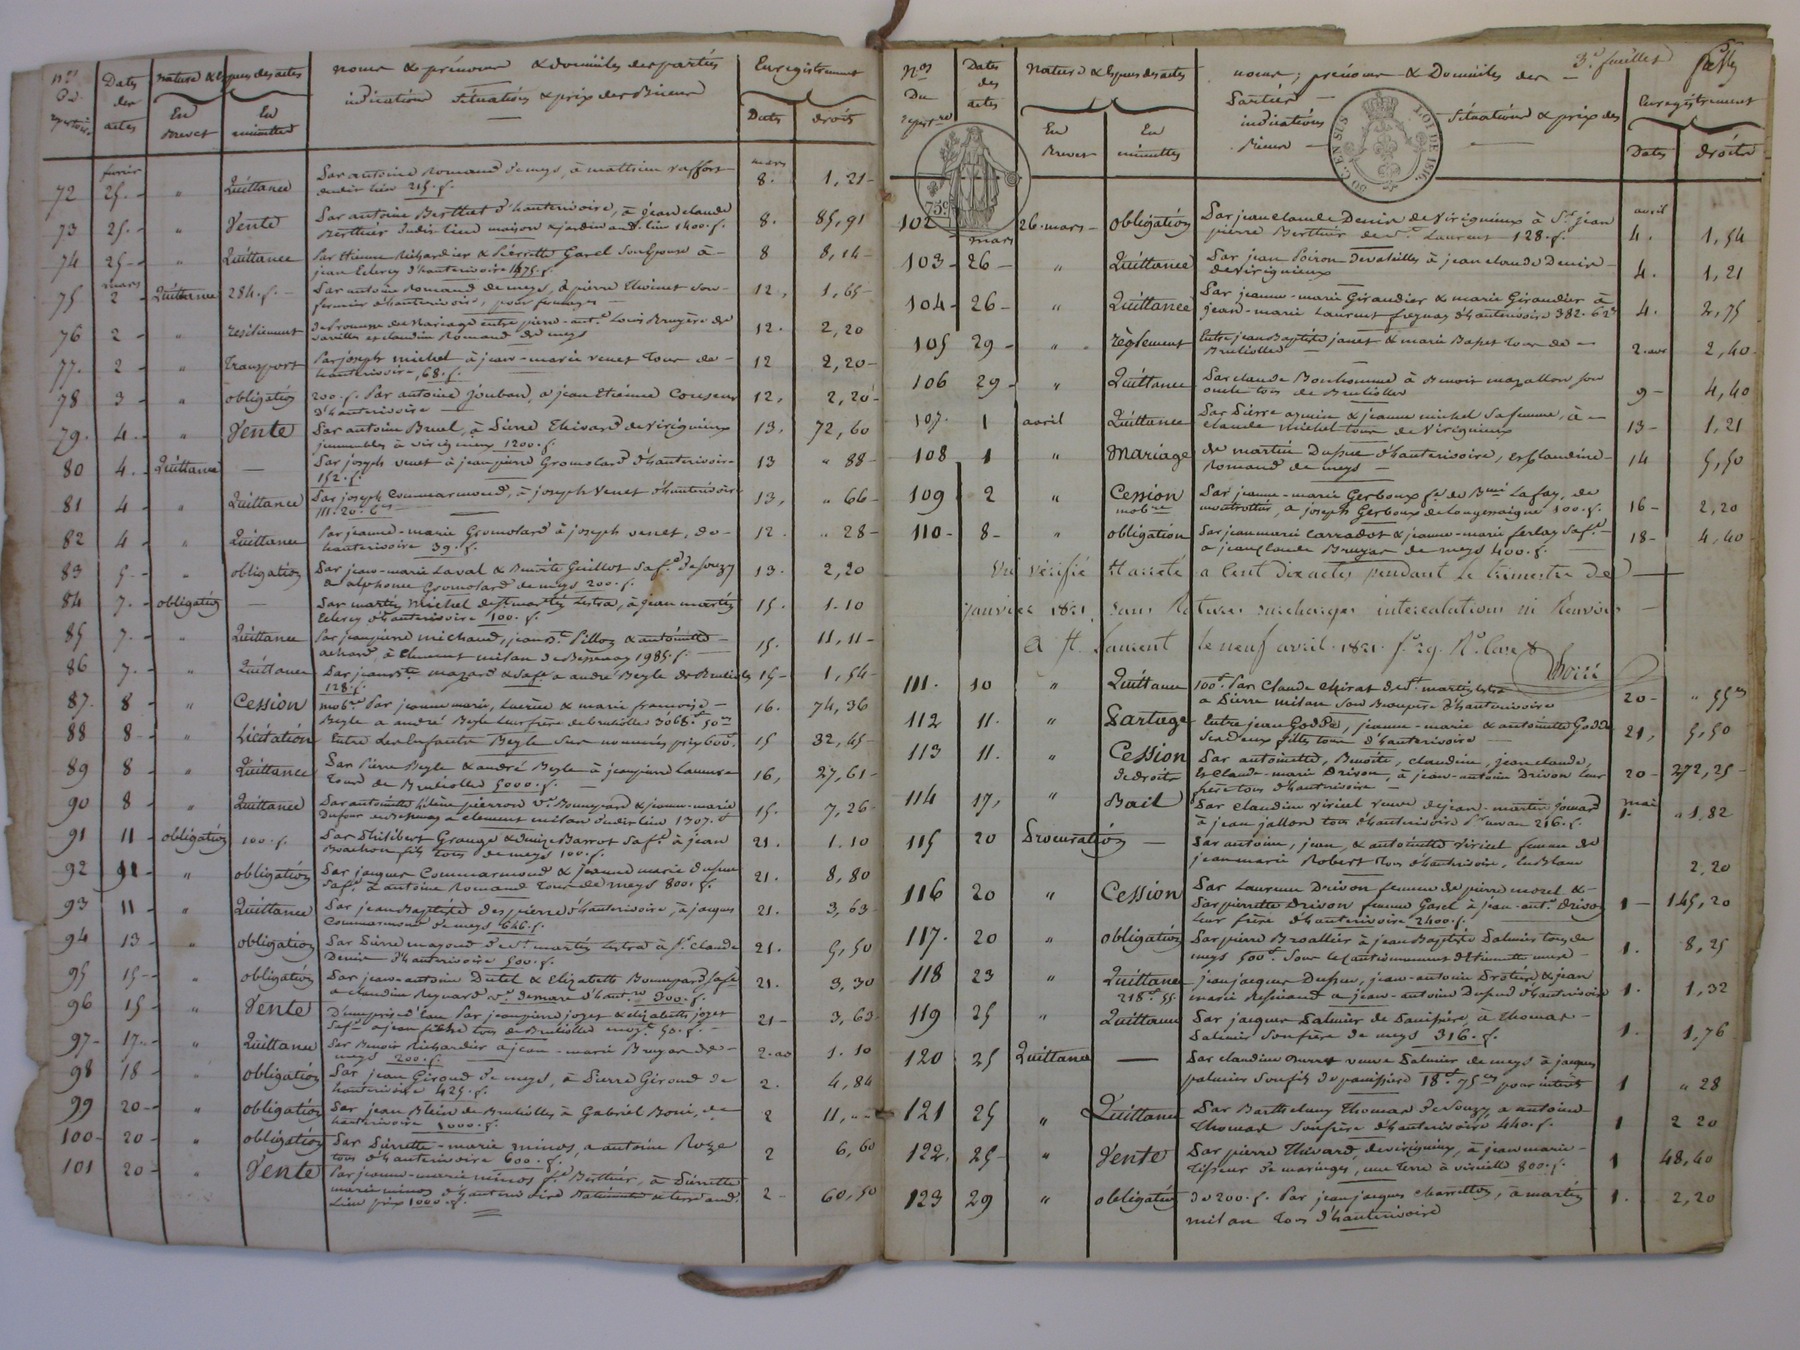 nos
Du
Dates
des
actes
nature & Espèces des actes
En
Brevet
En
minuttes
noms & prénoms & domiciles des parties
indications situations & prix des Biens
Enregistrement
Dates
droits
fevrier
mars
72 25 - " Quittance Par antoine Romand de meys, à mathieu raffort 8. 1,21
dudit lieu 215. f.
73 25. - " Vente Par antoine Berthet d'hauterivoire, à jean claude 8. 85,91
Berthier dudit lieu maison & jardin aud. lieu 1400. f.
74 25 - " Quittance Par Etienne Richardier & Pierrette Garel son Epouse à - 8 8,14
jean Eclercy d'hauterivoire 1475. f.
mars
75 2 - Quittance 284. f. - Par antoine Romand de meys, à pierre Thoinet son 12, 1,65
fermier d'hauterivoire, pour fermages -
76 2 - " résiliement de Promesse de Mariage entre pierre-ant.e Louis Bruyère de 12. 2,20
et claudine Romand de meys
77. 2 - " Transport Par joseph michel à jean-marie venet tous de - 12 2,20
hauterivoire, 68. f.
78 3 - " obligation 200. f. Par antoine joubard, à jean Etienne 12, 2,20
d'hauterivoire -
79. 4. - " Vente Par antoine Bruel, à Pierre Thivard de Virigneux 13, 72,60
immeubles à virigneux 1200. f.
80 4. - Quittance - Par joseph venet à jean pierre Gromolard d'hauterivoire 13 " 88
152. f.
81 4 - " Quittance Par joseph Commarmond, à joseph Venet d'hauterivoire 13, " 66
111. 20. c
82 4 - " Quittance Par jeanne-marie Gromolard à joseph venet, de - 12. " 28
hauterivoire 39. f.
83 5. - " obligation Par jean-marie Laval & Benoite Guillot sa f.e de souzy 13. 2,20
à alphonse Gromolard de meys 200. f.
84 7. - obligation - Par martin michel de st martin Lestra, à jean martin 15. 1.10
Eclercy d'hauterivoire 100. f.
85 7. - " Quittance Par jean pierre michaud, jean B.te Pilloz & antoinette - 15. 11,11
à Clement milan de Bessenay 1985. f.
86 7. - " Quittance Par jean B.te mazard & sa f.e à andré Beyle de Brulioles 15 - 1,54
128. f.
87. 8 " Cession mob.re Par jeanne marie, Laurence & marie françoise - 16. 74,36
Beyle à andré Beyle leur frère de brulioles 3068. f 50 c
88 8 - " Licitation Entre les enfants Beyle sus nommés, prix 600. f 15 32,45
89 8 " Quittance Par Pierre Beyle & andré Beyle à jean pierre Laurent 16, 27,61
tous de Brulioles 5000. f. -
90 8 - " Quittance Par antoinette hélène pierron v.e Bonnepard & jeanne-marie 15. 7,26
Dufour de Bessenay à clement milan dudit lieu 1307. f
91 11 - obligation 100. f. Par Philibert Grange & Denise Barrot sa f.e à jean 21. 1.10
Brachon fils tous de meys 100. f.
92 11 - " obligation Par jacques Commarmond & jeanne marie dupuis 21. 8,80
sa f.e à antoine Romand tous de meys 800. f.
93 11 - " Quittance Par jean Baptiste despierre d'hauterivoire, à jacques 21. 3,63
Commarmond de meys 646. f.
94 13 - " obligation Par Pierre mazoud de st martin Lestra à f.s claude 21. 5,50
Denis d'hauterivoire 500. f.
95 15 - " obligation Par jean-antoine Dutel & Elizabeth Bonnepard sa f.e 21. 3,30
à claudine Reynard v.e demare d'haut.re 300. f.
96 15 - " Vente D'une prise d'eau Par jean pierre joyet & elizabeth joyet 21 - 3,63
sa f.e à jean tous de Brulioles moy.t 50. f. -
97 - 17. - " Quittance Par Benoit Richardier à jean-marie Bruyas de - 2. av 1.10
meys 200. f.
98 18 - " obligation Par jean Giroud de meys, à Pierre Giroud de 2. 4,84
hauterivoire 425. f.
99 20 - " obligation Par jean Blein de Brulioles à Gabriel Boni, de 2 11, "
hauterivoire 1000. f.
100 - 20 - " obligation Par Pierrette-marie minos, à antoine Roze 2 6,60
tous d'hauterivoire 600. f.
101 20 - " Vente Par jeanne-marie minos f.e Berthier, à Pierrette 2 - 60,50
marie minos d'hauterivoire Batiments & terre aud.
Lieu prix 1000. f.
3.e feuillet
Nos
Du
Dates
des
actes
Nature & Espèces des actes
En
Brevet
En
minuttes
noms, prénoms & Domiciles des -
Parties -
indications - situations & prix des
Biens -
Enregistrement
Dates
droits
75 c
50 C. EN SUS
LOI DE 1816.
102 26. mars - obligation Par jean claude Denis de Virigneux à St jean avril
pierre Berthier de st Laurent 128. f. 4. 1,54
mars
103 - 26 - " Quittance Par jean Poiron à jean claude Denis - 4. 1,21
de virigneux
104 - 26 - " Quittance Par jeanne-marie Giraudier & marie Giraudier à 4. 2,75
jean-marie Laurent freynay d'hauterivoire 382. 62 c
105 29 - " règlement Entre jean Baptiste janet & marie Bapet tous de - 2. avr 2,40
Brulioles -
106 29 - " Quittance Par claude Bonhomme à Benoit mazallon son 9 - 4,40
oncle tous de Brulioles
107. 1 avril Quittance Par Pierre & jeanne michel sa femme, à - 13 - 1,21
claude michel tous de Virigneux
108 1 " Mariage de martin Dupuis d'hauterivoire, et Claudine - 14 5,50
Romand de meys -
109 2 " Cession mob.re Par jeanne-marie Gerboux f.e de B.mi Lafay, de 16 - 2,20
montrottier, à joseph Gerboux de Longessaigne 100. f.
110 - 8 - " obligation Par jean marie Carradot & jeanne-marie ferlay sa f.e - 18 - 4,40
à jean claude Bruyas de meys 400. f.
Vu vérifié et arrêté à Cent dix actes pendant le trimestre de
janvier 1821, sans Ratures surcharges intercalations ni Renvois -
A St. Laurent le neuf avril 1821. f.o 29. R.o Case 8
111. 10 " Quittance 100. f Par Claude Chirat de st martin Lestra 20 - " 55 c
à Pierre milan son Beaupère d'hauterivoire
112 11. " Partage Entre jean Godde, jeanne-marie & antoinette Godde 21, 5,50
ses deux filles tous d'hauterivoire -
113 11. " Cession de droits Par antoinette, Benoite, claudine, jean claude, 20 - 272,25
& Claude-marie Drivon, à jean-antoine Drivon leur
frère tous d'hauterivoire -
114 17, " Bail Par Claudine viricel veuve de jean-martin jomard mai 1. " 1,82
à jean jallon tous d'hauterivoire P.r un an 216. f.
115 20 Procuration - Par antoine, jean, & antoinette viricel femme de
jean marie Robert tous d'hauterivoire, En Blanc 2,20
116 20 " Cession Par Laurence Drivon femme de pierre morel & - 1 - 145,20
Par pierrette Drivon femme Garel à jean-ant.e Drivon
leur frère d'hauterivoire 2400. f.
117. 20 " obligation Par pierre Broallier à jean Baptiste Palmier tous de 1. 8,25
meys 500. f sous le Cautionnement d'Etiennette -
118 23 " Quittance jean jacques Dupuis, jean-antoine Protière & jean 1. 1,32
218. f 55. marie Ressicaud à jean-antoine Dupuis d'hauterivoire
119 25 " Quittance Par jacques Palmier de Panissière à Thomas - 1. 1,76
Palmier son frère de meys 316. f.
120 25 Quittance - Par claudine veuve Palmier de meys à jacques
palmier son fils de panissière 18. f 75 cs pour interêts 1 " 28
121 25 " Quittance Par Barthelemy Thomas de Souzy, à antoine
Thomas son frère d'hauterivoire 440. f. 1 2 20
122. 25 - " Vente Par pierre Thivard, de virigneux, à jean marie - 1 48,40
Tisseur de maringes, une terre à viricelle 800. f.
123 29 " obligation de 200. f. Par jean jacques charretton, à martin 1. 2,20
milan tous d'hauterivoire